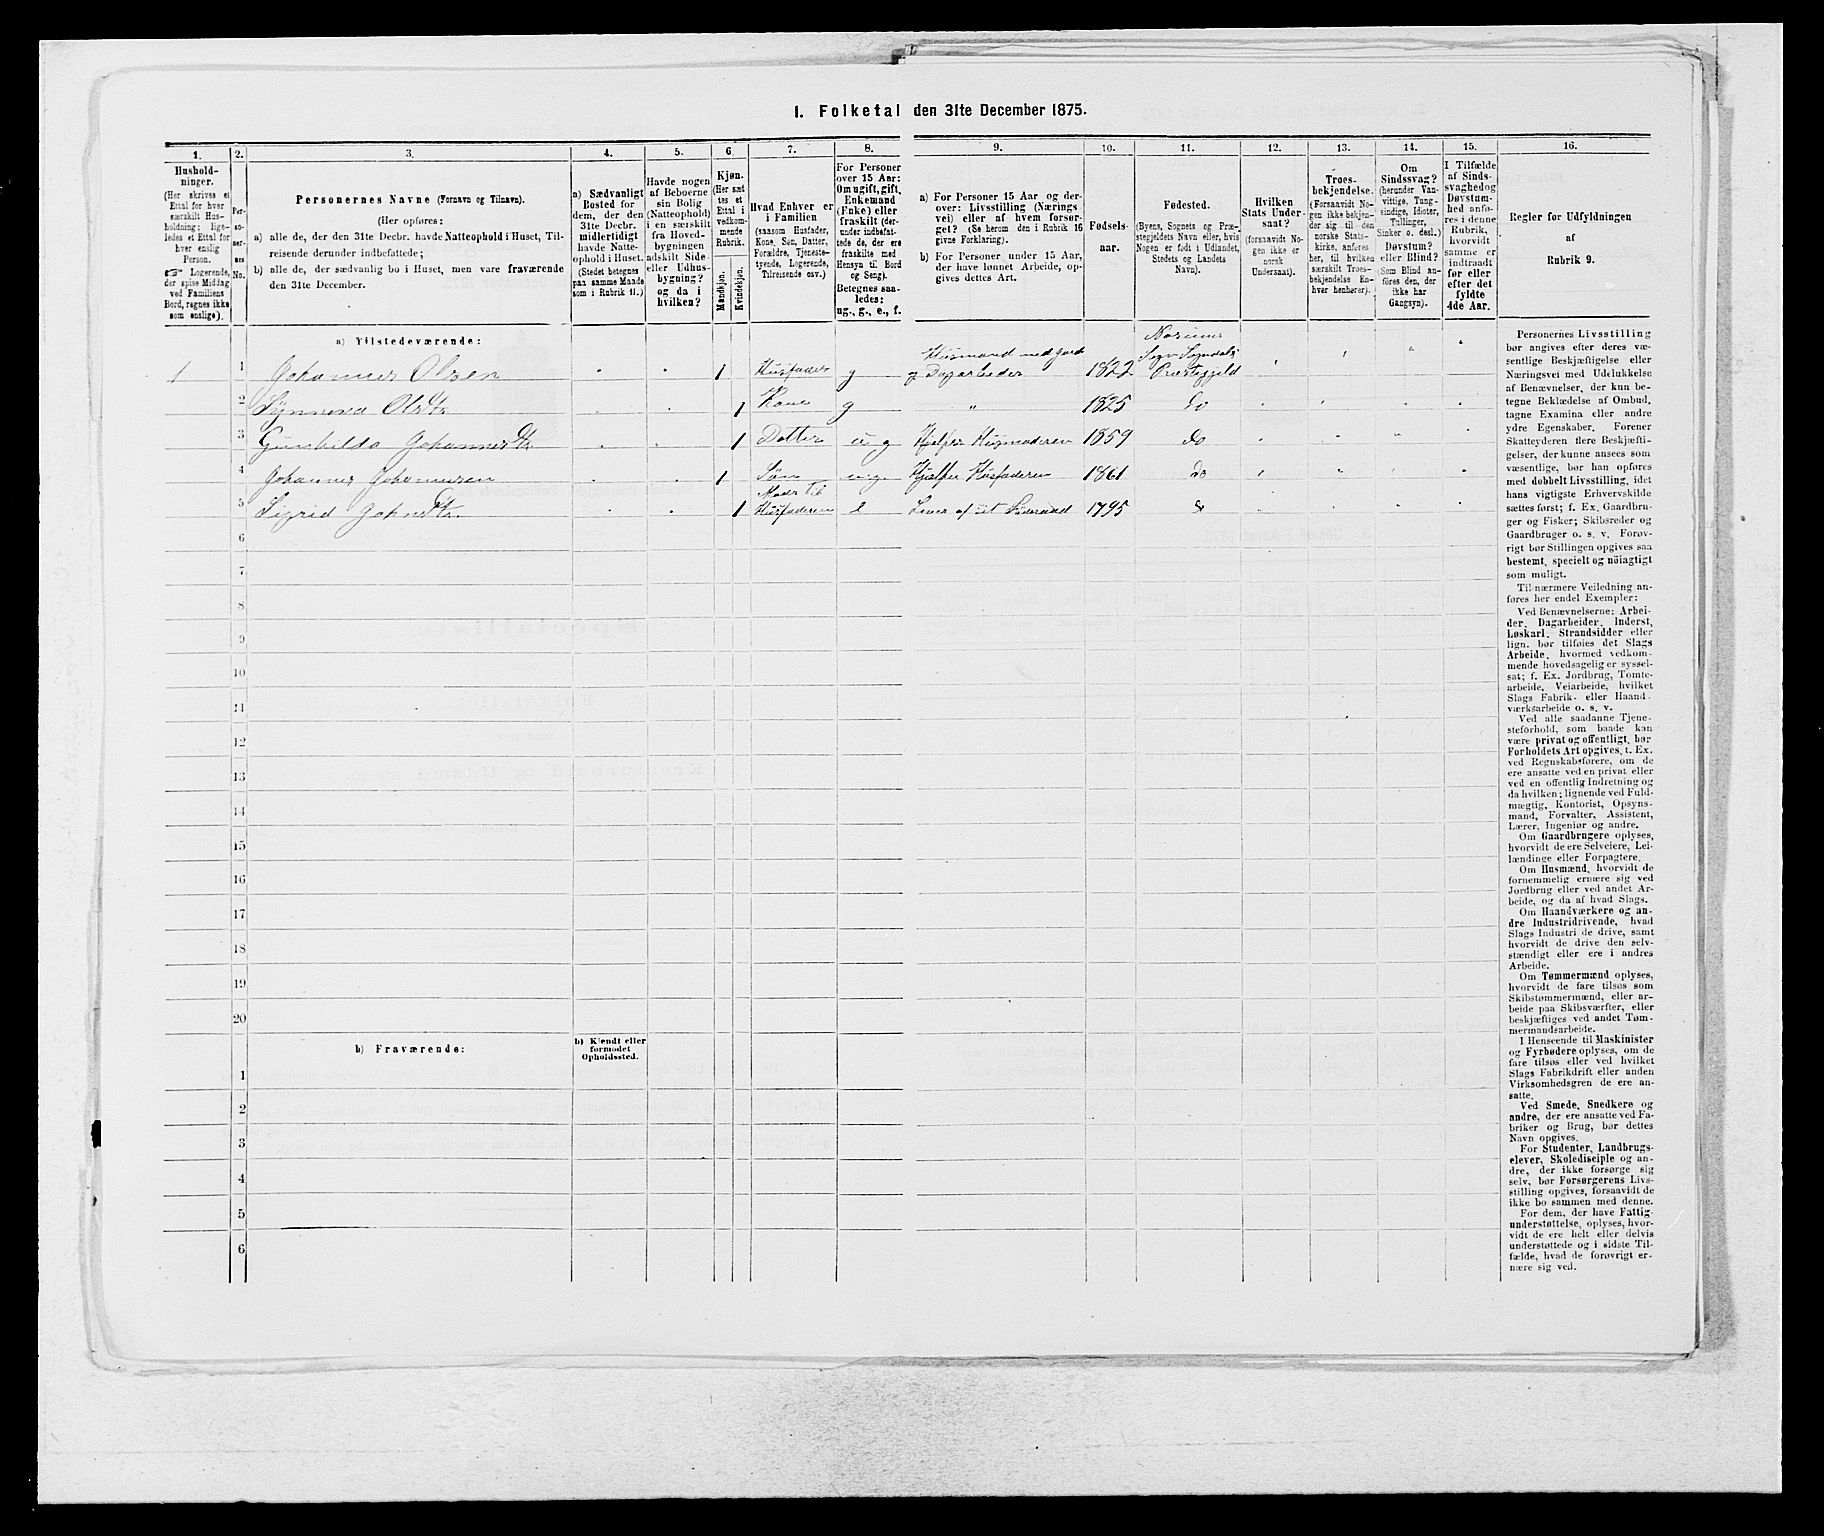 I. Folketal den 31te December 1875.
1. 2. 3. 4. 5. 6. 7. 8. 9. 10. 11. 12. 13. 14. 15. 16.
Hushold-
ninger.
(Her skrives et
Ettal for hver
særskilt Hus-
holdning; lige-
ledes et Ettal for
hver enslig
Person.
☞ Logerende,
der spise Middag
ved Familiens
Bord, regnes ikke
som enslige).
Per-
so-
ner-
nes
No.
Personernes Navne (Fornavn og Tilnavn).
(Her opføres:
a) alle de, der den 31te Decbr. havde Natteophold i Huset, Til-
reisende derunder indbefattede;
b) alle de, der sædvanlig bo i Huset, men vare fraværende
den 31te December.
a) Sædvanligt
Bosted for
dem, der den
31te Decbr.
midlertidigt
havde Natte-
ophold i Huset.
(Stedet betegnes
paa samme Maade
som i Rubrik 11.)
Havde nogen
af Beboerne
sin Bolig
(Natteophold)
i en særskilt
fra Hoved-
bygningen
adskilt Side-
eller Udhus-
bygning?
og da i
hvilken?
Kjøn.
(Her sæt
tes et
Ettal i
vedkom-
mende
Rubrik.
Mandkjøn.
Kvindekjøn.
Hvad Enhver er
i Familien
(saasom Husfader,
Kone, Søn, Datter,
Forældre, Tjeneste-
tyende, Logerende,
Tilreisende osv.)
For Personer
over 15 Aar:
Om ugift, gift,
Enkemand
(Enke) eller
fraskilt (der-
under indbefat-
tede de, der ere
fraskilte med
Hensyn til Bord
og Seng).
Betegnes saa-
ledes:
ug., g., e., f.
a) For Personer 15 Aar og der-
over: Livsstilling (Nærings
vei) eller af hvem forsør-
get? (Se herom den i Rubrik 16
givne Forklaring).
b) For Personer under 15 Aar,
der have lønnet Arbeide, op-
gives dettes Art.
Fødsels-
aar.
Fødested.
(Byens, Sognets og Præ-
stegjeldets Navn eller, hvis
Nogen er født i Udlandet,
Stedets og Landets
Navn).
Hvilken
Stats Under-
saat?
(forsaavidt No-
gen ikke er
norsk
Undersaat).
Troes-
bekjendelse.
(Forsaavidt No-
gen ikke bekjen-
der sig til den
norske Stats-
kirke, anføres
her, til hvilken
særskilt Troes-
bekjendelse En-
hver henhører).
Om
Sindssvag?
(herunder Van-
vittige, Tung-
sindige, Idioter,
Tullinger,
Sinker o. desl.)
Døvstum?
eller Blind?
(Som Blind an-
føres den, der
ikke har
Gangsyn).
I Tilfælde
af Sinds-
svaghed og
Døvstum-
hed anfø-
res i denne
Rubrik,
hvorvidt
samme er
indtraadt
før eller
efter det
fyldte
4de Aar.
Regler for Udfyldningen
af
Rubrik 9.
a) Tilstedeværende:
1 1 Johannes Olsen 1 Husfader g Husmand med Jord og Dagarbeider 1822 Sogndals Præstegjeld
2 Synneva Olsdtr 1 Kone g " 1825 do
3 Gunhilda Johannesdtr. 1 Datter ug Hjelper Husmoderen 1859 do
4 Johannes Johannesen 1 Søn ug Hjælper Husfaderen 1861 do
5 Sigrid Johnsdtr. 1 Moder til Husfaderen e Lever af sit 1795 do
6
7
8
9
10
11
12
13
14
15
16
17
18
19
20
b) Fraværende:
b) Kjendt eller
formodet
Opholdssted.
1
2
3
4
5
6
Personernes Livsstilling
bør angives efter deres væ-
sentlige Beskjæftigelse eller
Næringsvei med Udelukkelse
af Benævnelser, der kun be-
tegne Beklædelse af Ombud,
tagne Examina eller andre
ydre Egenskaber. Forener
Skatteyderen flere Beskjæfti-
gelser, der kunne ansees som
væsentlige, bør han opføres
med dobbelt Livsstilling, idet
hans vigtigste Erhvervskilde
sættes først; f. Ex. Gaardbru-
ger og Fisker; Skibsreder og
Gaardbruger o. s. v. Forøv-
rigt bør Stillingen opgives saa
bestemt, specielt og nøiagtigt
som muligt.
Til nærmere Veiledning an-
føres her endel Exempler:
Ved Benævnelserne: Arbei-
der, Dagarbeider, Inderst,
Løskarl, Strandsidder eller
lign. bør tilføies det Slags
Arbeide, hvormed vedkom-
mende hovedsagelig er syssel-
sat; f. Ex. Jordbrug, Tomte-
arbeide, Veiarbeide, hvilket
Slags Fabrik- eller Haand-
værksarbeide o. s. v.
Ved alle saadanne Tjene-
steforhold, som baade kan
være privat og offentligt, bør
Forholdets Art opgives, t. Ex.
ved Regnskabsførere, om de
ere ansatte ved en privat eller
ved en offentlig Indretning og
da hvilken; lignende ved Fuld-
mægtig, Kontorist, Opsyns-
mand, Forvalter, Assistent,
Lærer, Ingeniør og andre.
Om Gaardbrugere oplyses,
hvorvidt de ere Selveiere, Lei-
lændinge eller Forpagtere.
Om Husmænd, hvorvidt de
fornemmelig ernære sig ved
Jordbrug eller ved andet Ar-
beide, og da af hvad Slags.
Om Haandværkere og an-
dre Industridrivende, hvad
Slags Industri de drive, samt
hvorvidt de drive den selv-
stændigt eller ere i andres
Arbeide.
Om Tømmermænd oplyses,
hvorvidt de fare tilsøs som
Skibstømmermænd, eller ar-
beide paa Skibsværfter, eller
beskjæftiges ved andet Tøm-
mermandsarbeide.
I Henseende til Maskinister
og Fyrbødere oplyses, om de
fare tilsøs eller ved hvilket
Slags Fabrikdrift eller anden
Virksomhedsgren de ere an-
satte.
Ved Smede, Snedkere og
andre, der ere ansatte ved Fa-
briker og Brug, bør dettes
Navn opgives.
For Studenter, Landbrugs-
elever, Skoledisciple og an-
dre, der ikke forsørge sig
selv, bør Forsørgerens Livs-
stilling opgives, forsaavidt de
ikke bo sammen med denne.
For dem, der have Fattig-
understøttelse, oplyses, hvor-
vidt de ere helt eller delvis
understøttede og i sidste Til-
fælde, hvad de forøvrigt er-
nære sig ved.